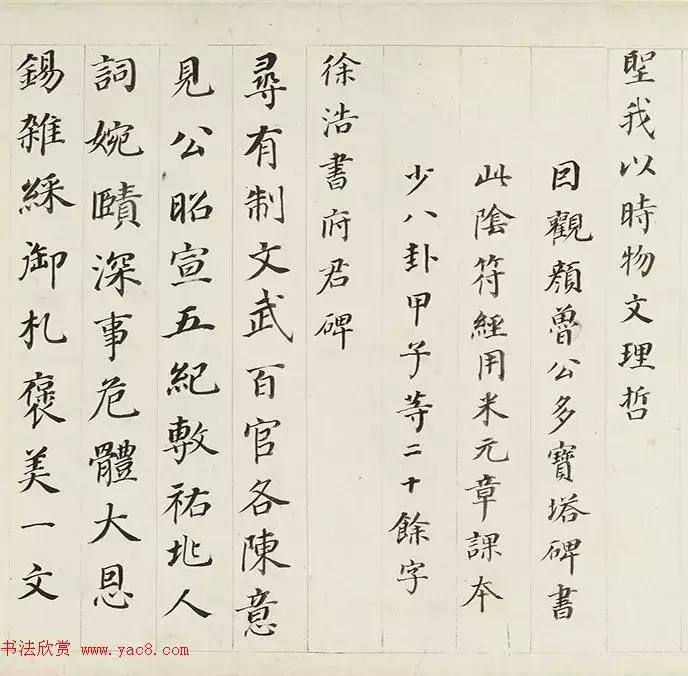 聖我以時物文理哲
因觀顔魯公多寶塔碑書
此陰符經用米元章課本
少八卦甲子等二十餘字
徐浩書府君碑
尋有制文武百官各陳意
見公昭宣五紀敷祐兆人
詞婉賾深事危體大恩
錫雜綵御札褒美一文
书法欣赏 www.yac8.com